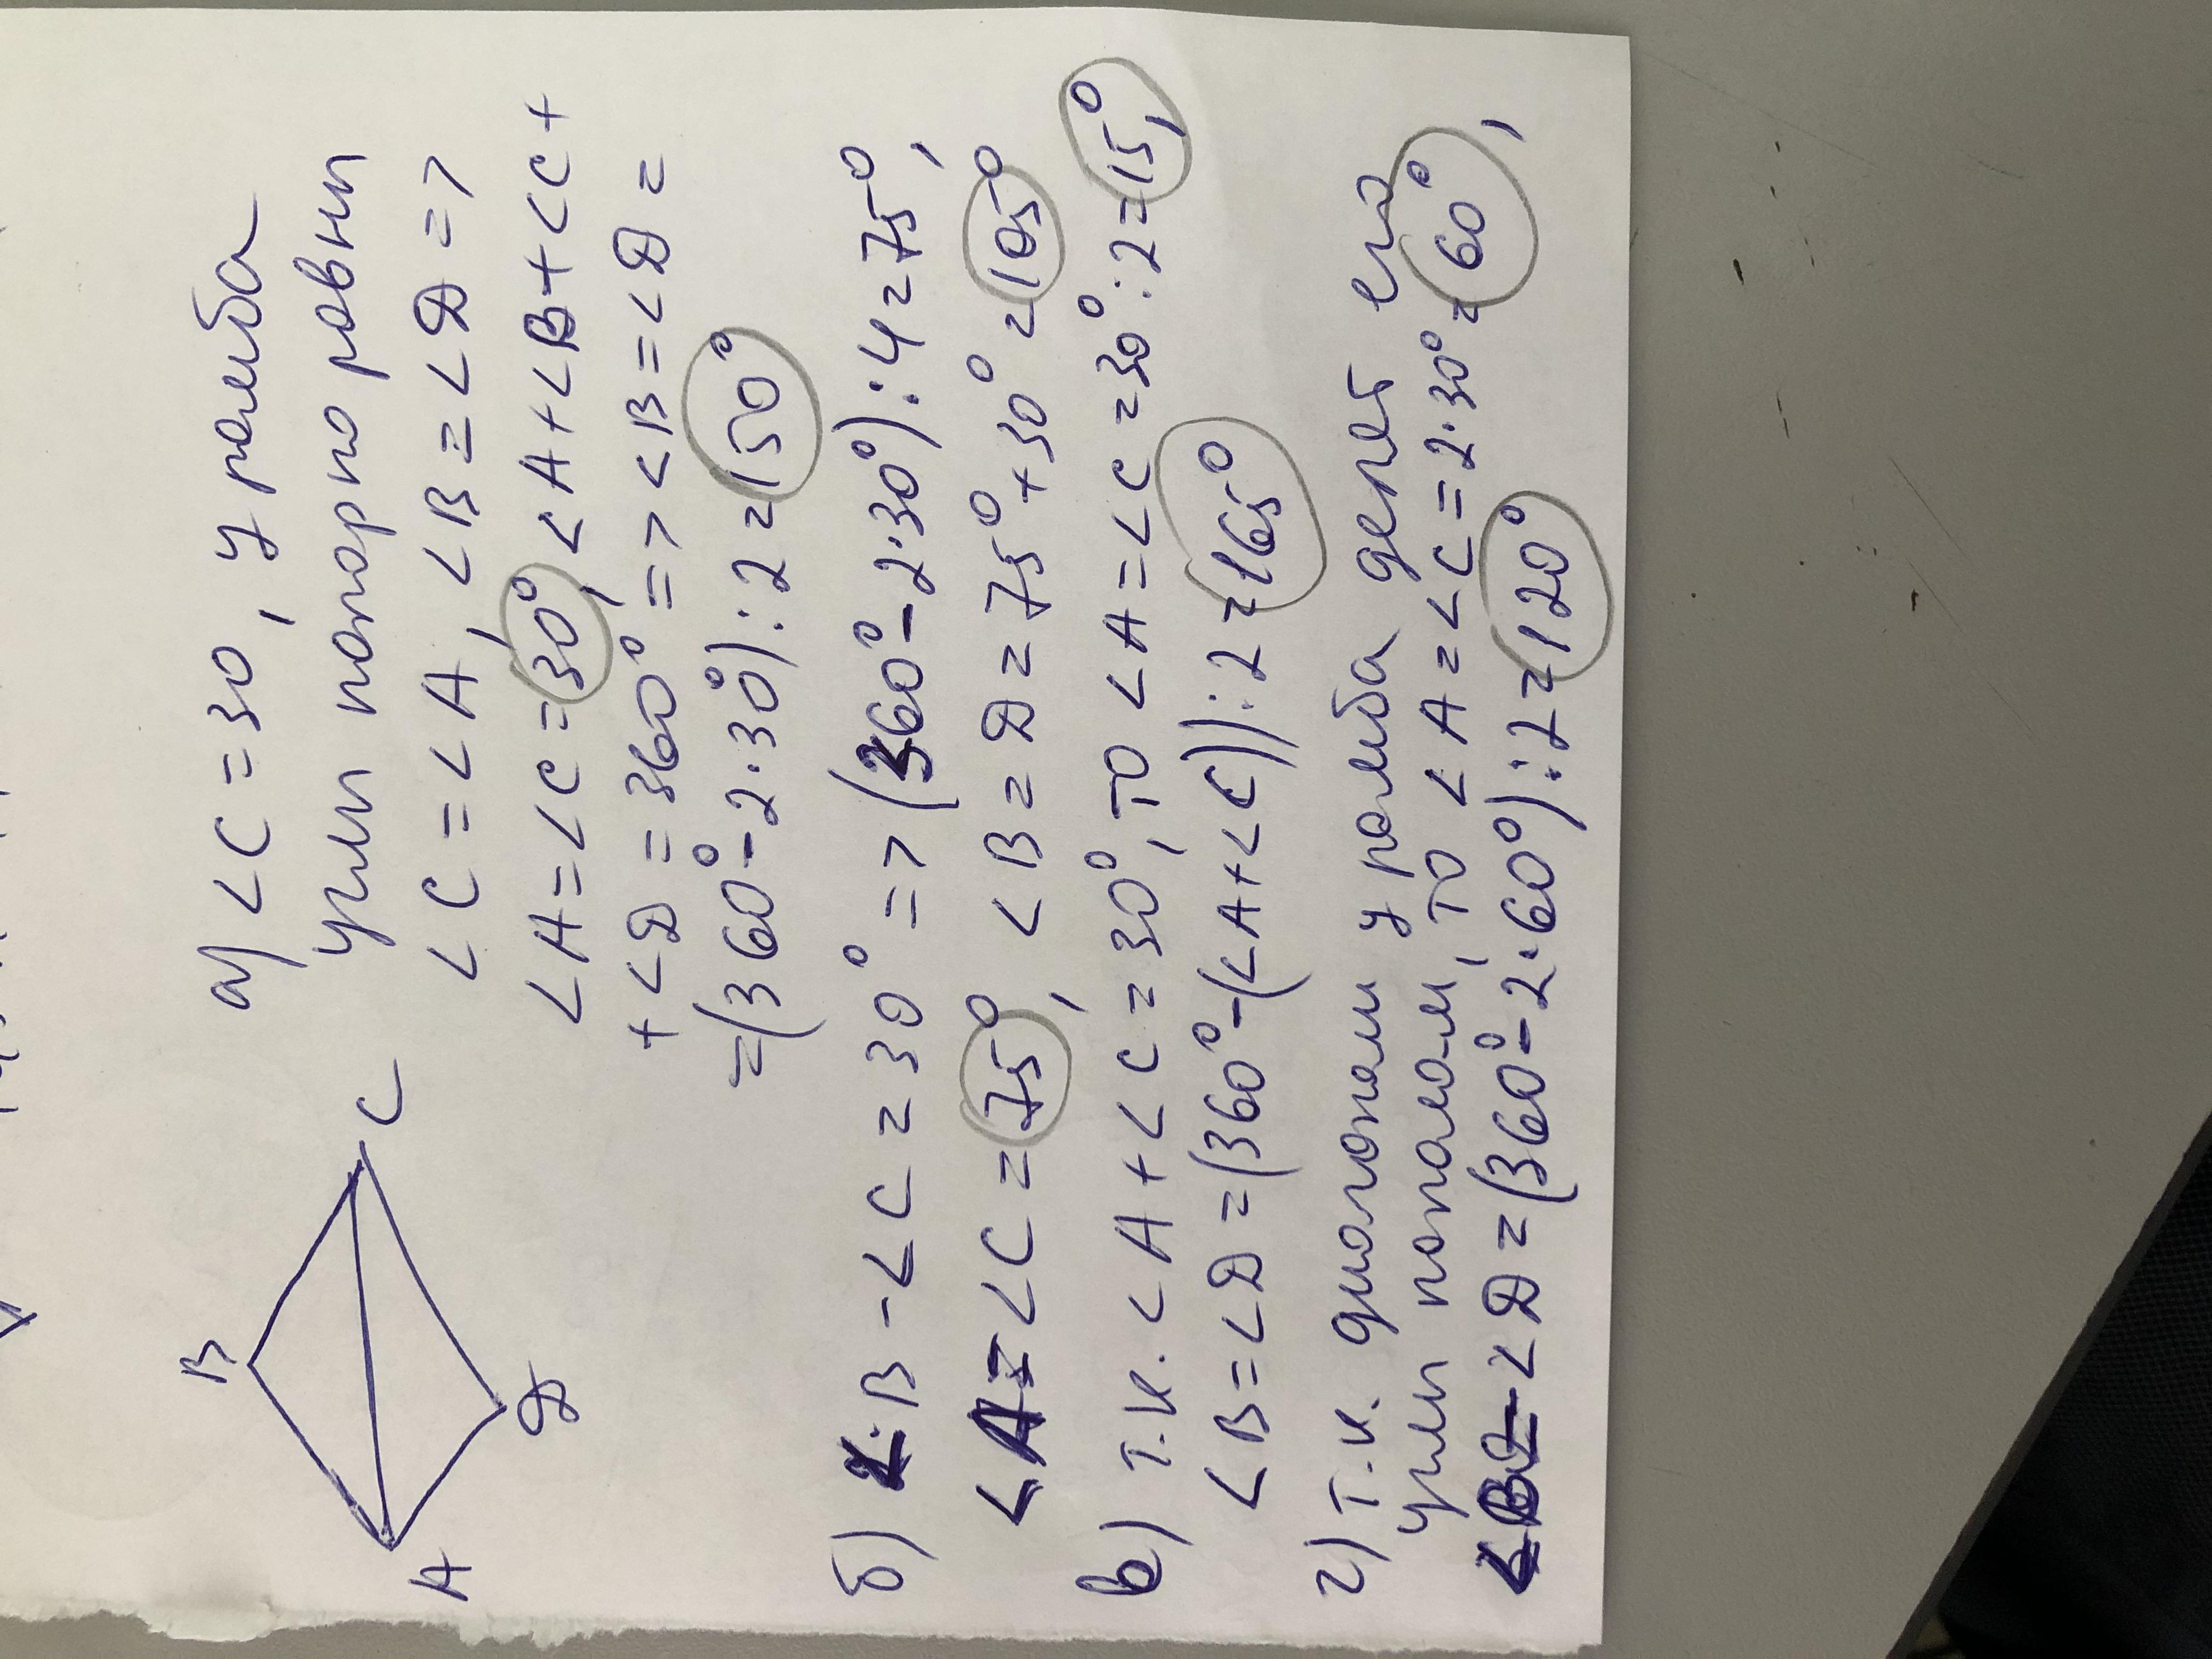 B
A
C
D
а) <C = 30, у ромба
углы попарно равны
<C = <A, <B = <D =>
<A = <C = 30°, <A + <B + <C +
+ <D = 360° => <B = <D =
= (360° - 2·30°) : 2 = 150°
б) <B - <C = 30° => (360° - 2·30°) : 4 = 75°,
<A = <C = 75°, <B = D = 75° + 30° = 105°
в) т.к. <A + <C = 30°, то <A = <C = 30° : 2 = 15°,
<B = <D = (360° - (<A + <C)) : 2 = 165°
г) т.к. диагонали у ромба делят его
углы пополам, то <A = <C = 2·30° = 60°,
<D = (360° - 2·60°) : 2 = 120°